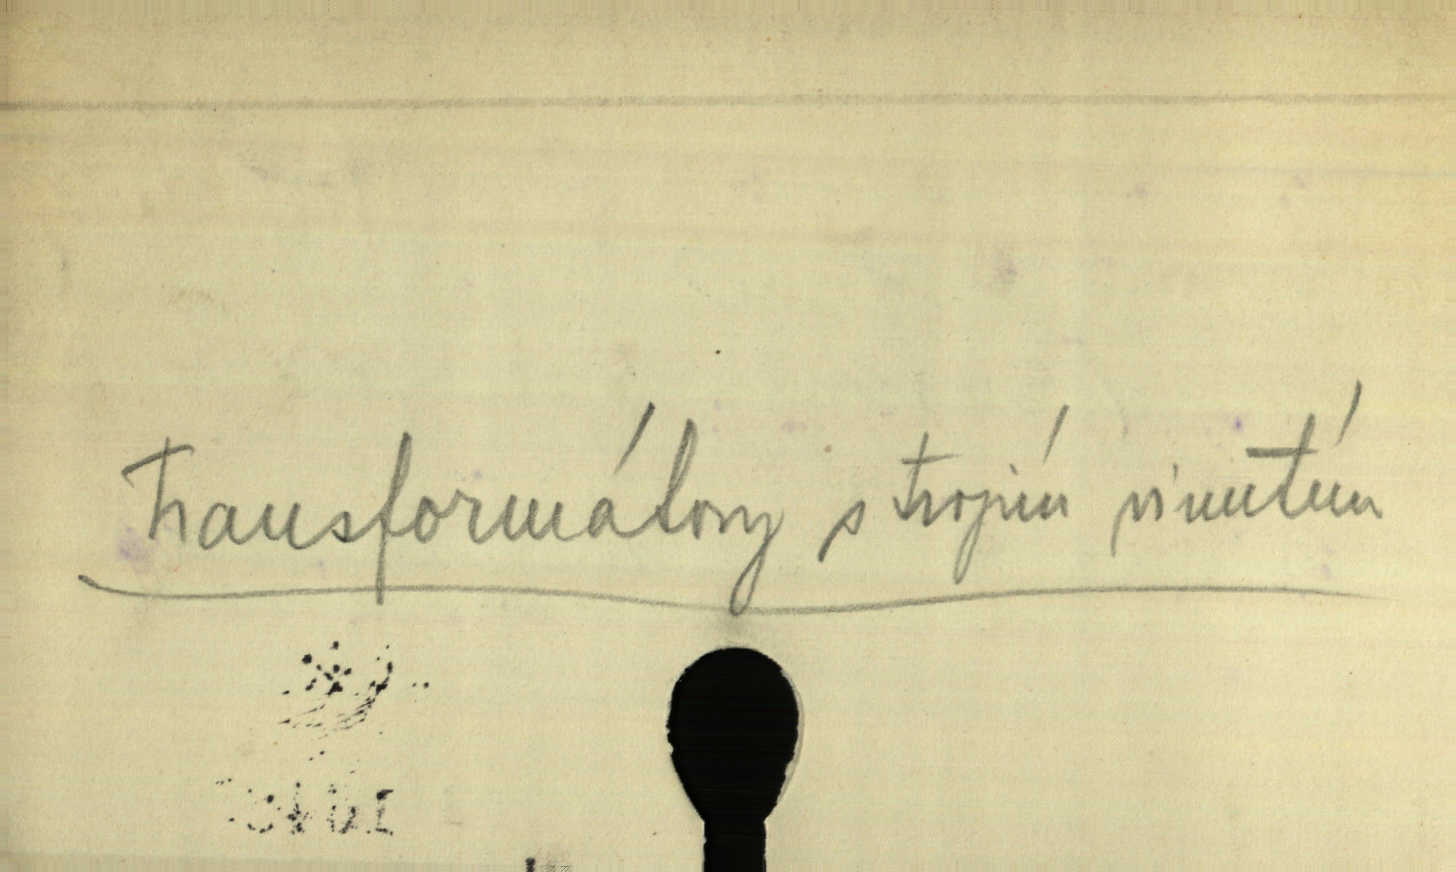 Transformátory s trojím vinutím